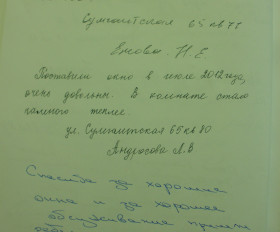 Сумгаитская 65 кв 75
Н. Е
Поставили окно в июле 2012 года,
очень довольны. В комнате стало
намного теплее.
ул. Сумгаитская 65 кв 80
Андросова Л. В.
Спасибо за хорошие
окна и за хорошее
обслуживания